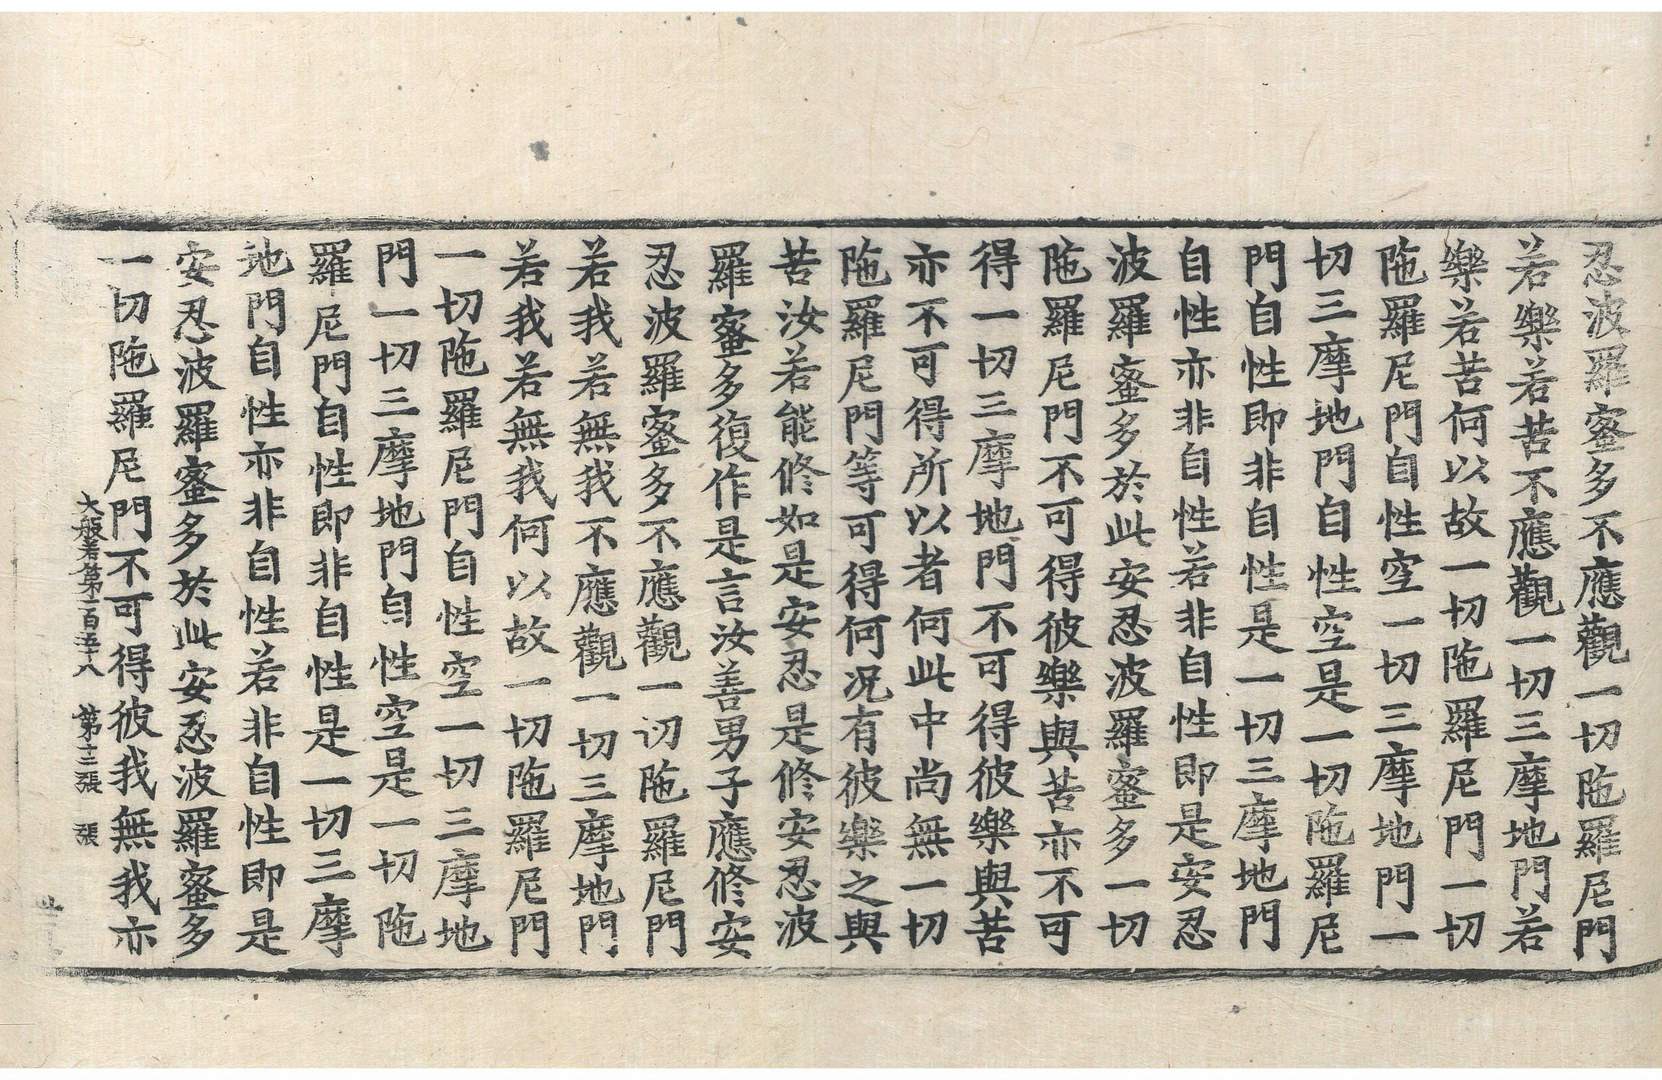 忍波羅蜜多不應觀一切陁羅尼門
若樂若苦不應觀一切三摩地門若
樂若苦何以故一切陁羅尼門一切
陁羅尼門自性空一切三摩地門一
切三摩地門自性空是一切陁羅尼
門自性即非自性是一切三摩地門
自性亦非自性若非自性即是安忍
波羅蜜多於此安忍波羅蜜多一切
陁羅尼門不可得彼樂與苦亦不可
得一切三摩地門不可得彼樂與苦
亦不可得所以者何此中尚無一切
陁羅尼門等可得何况有彼樂之與
苦汝若能修如是安忍是修安忍波
羅蜜多復作是言汝善男子應修安
忍波羅蜜多不應觀一切陁羅尼門
若我若無我不應觀一切三摩地門
若我若無我何以故一切陁羅尼門
一切陁羅尼門自性空一切三摩地
門一切三摩地門自性空是一切陁
羅尼門自性即非自性是一切三摩
地門自性亦非自性若非自性即是
安忍波羅蜜多於此安忍波羅蜜多
一切陁羅尼門不可得彼我無我亦
大般若第一百五十八 第十三張